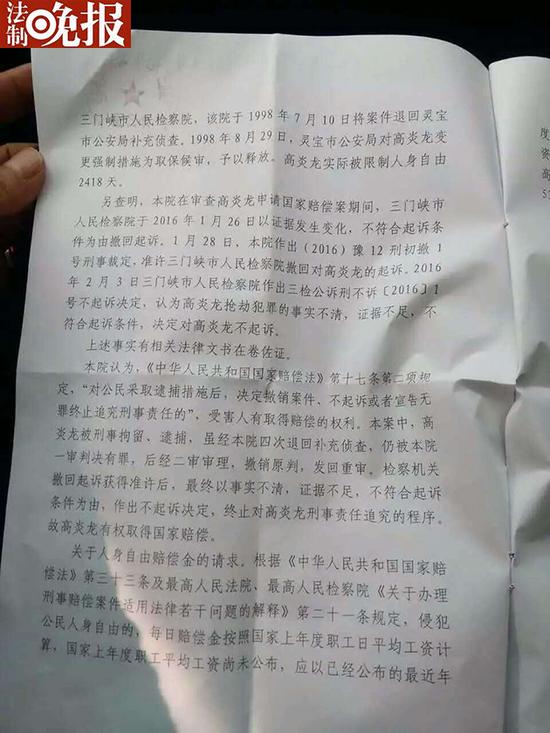 法制晚报
三门峡市人民检察院,该院于1998年7月10日将案件退回灵宝
市公安局补充侦查。1998年8月29日,灵宝市公安局对高炎龙变
更强制措施为取保候审,予以释放。高炎龙实际被限制人身自由
2418天。
另查明,本院在审查高炎龙申请国家赔偿案期间,三门峡市
人民检察院于2016年1月26日以证据发生变化,不符合起诉条
件为由撤回起诉。1月28日,本院作出(2016)豫12刑初撤1
号刑事裁定,准许三门峡市人民检察院撤回对高炎龙的起诉。2016
年2月3日三门峡市人民检察院作出三检公诉刑不诉〔2016〕1
号不起诉决定,认为高炎龙抢劫犯罪的事实不清,证据不足,不
符合起诉条件,决定对高炎龙不起诉。
上述事实有相关法律文书在卷佐证。
本院认为,《中华人民共和国国家赔偿法》第十七条第二项规
定,“对公民采取逮捕措施后,决定撤销案件、不起诉或者宣告无
罪终止追究刑事责任的”,受害人有取得赔偿的权利。本案中,高
炎龙被刑事拘留、逮捕,虽经本院四次退回补充侦查,仍被本院
一审判决有罪,后经二审审理,撤销原判,发回重审。检察机关
撤回起诉获得准许后,最终以事实不清,证据不足,不符合起诉
条件为由,作出不起诉决定,终止对高炎龙刑事责任追究的程序。
故高炎龙有权取得国家赔偿。
关于人身自由赔偿金的请求。根据《中华人民共和国国家赔
偿法》第三十三条及最高人民法院、最高人民检察院《关于办理
刑事赔偿案件适用法律若干问题的解释》第二十一条规定,侵犯
公民人身自由的,每日赔偿金按照国家上年度职工日平均工资计
算,国家上年度职工平均工资尚未公布,应以已经公布的最近年
度
资
高
5